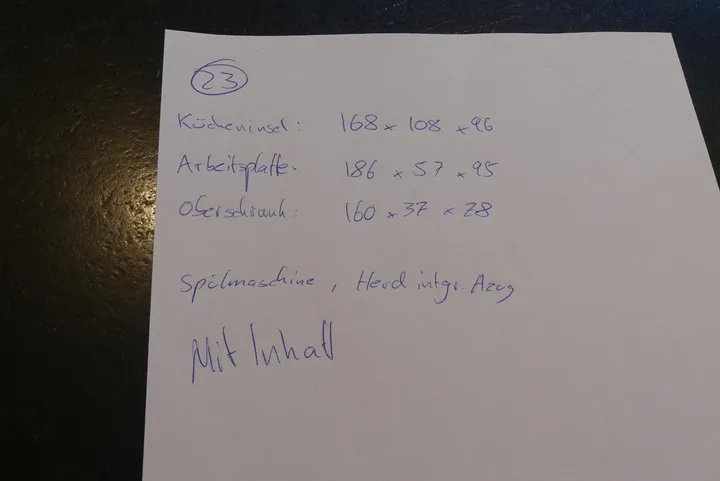 23
Kücheninsel: 168 x 108 x 96
Arbeitsplatte. 186 x 57 x 95
Oberschrank: 160 x 37 x 78
Spülmaschine, Herd intgr. Azug
Mit Inhalt